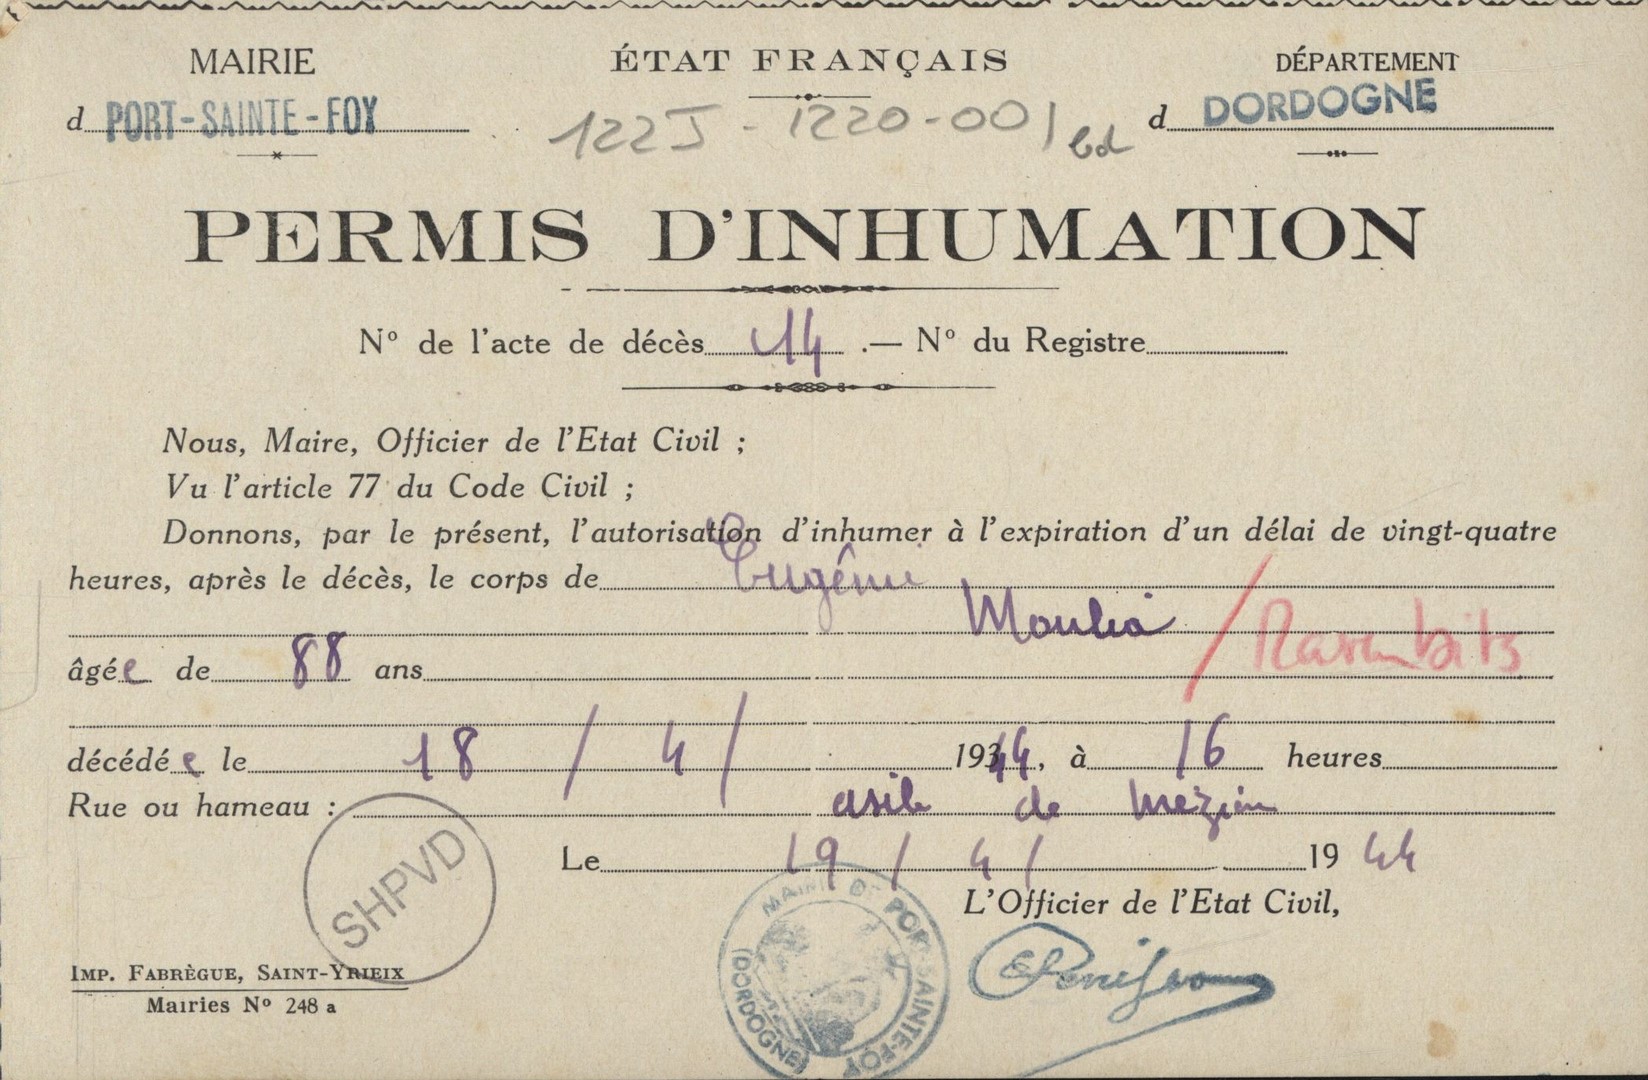 MAIRIE
ÉTAT FRANÇAIS
DÉPARTEMENT
d PORT-SAINTE-FOY
122J - 1220-001
d DORDOGNE
PERMIS D'INHUMATION
N° de l'acte de décès 14 .— N° du Registre
Nous, Maire, Officier de l'Etat Civil ;
Vu l'article 77 du Code Civil ;
Donnons, par le présent, l'autorisation d'inhumer à l'expiration d'un délai de vingt-quatre
heures, après le décès, le corps de Eugénie
Moulia /
âgée de 88 ans
décédée le 18 / 4 / 1944, à 16 heures
Rue ou hameau : asile de
Le 19 / 4 / 19 44
L'Officier de l'Etat Civil,
SHPVD
MAIRIE DE PORT-SAINTE-FOY
(DORDOGNE)
IMP. FABRÈGUE, SAINT-YRIEIX
Mairies N° 248 a